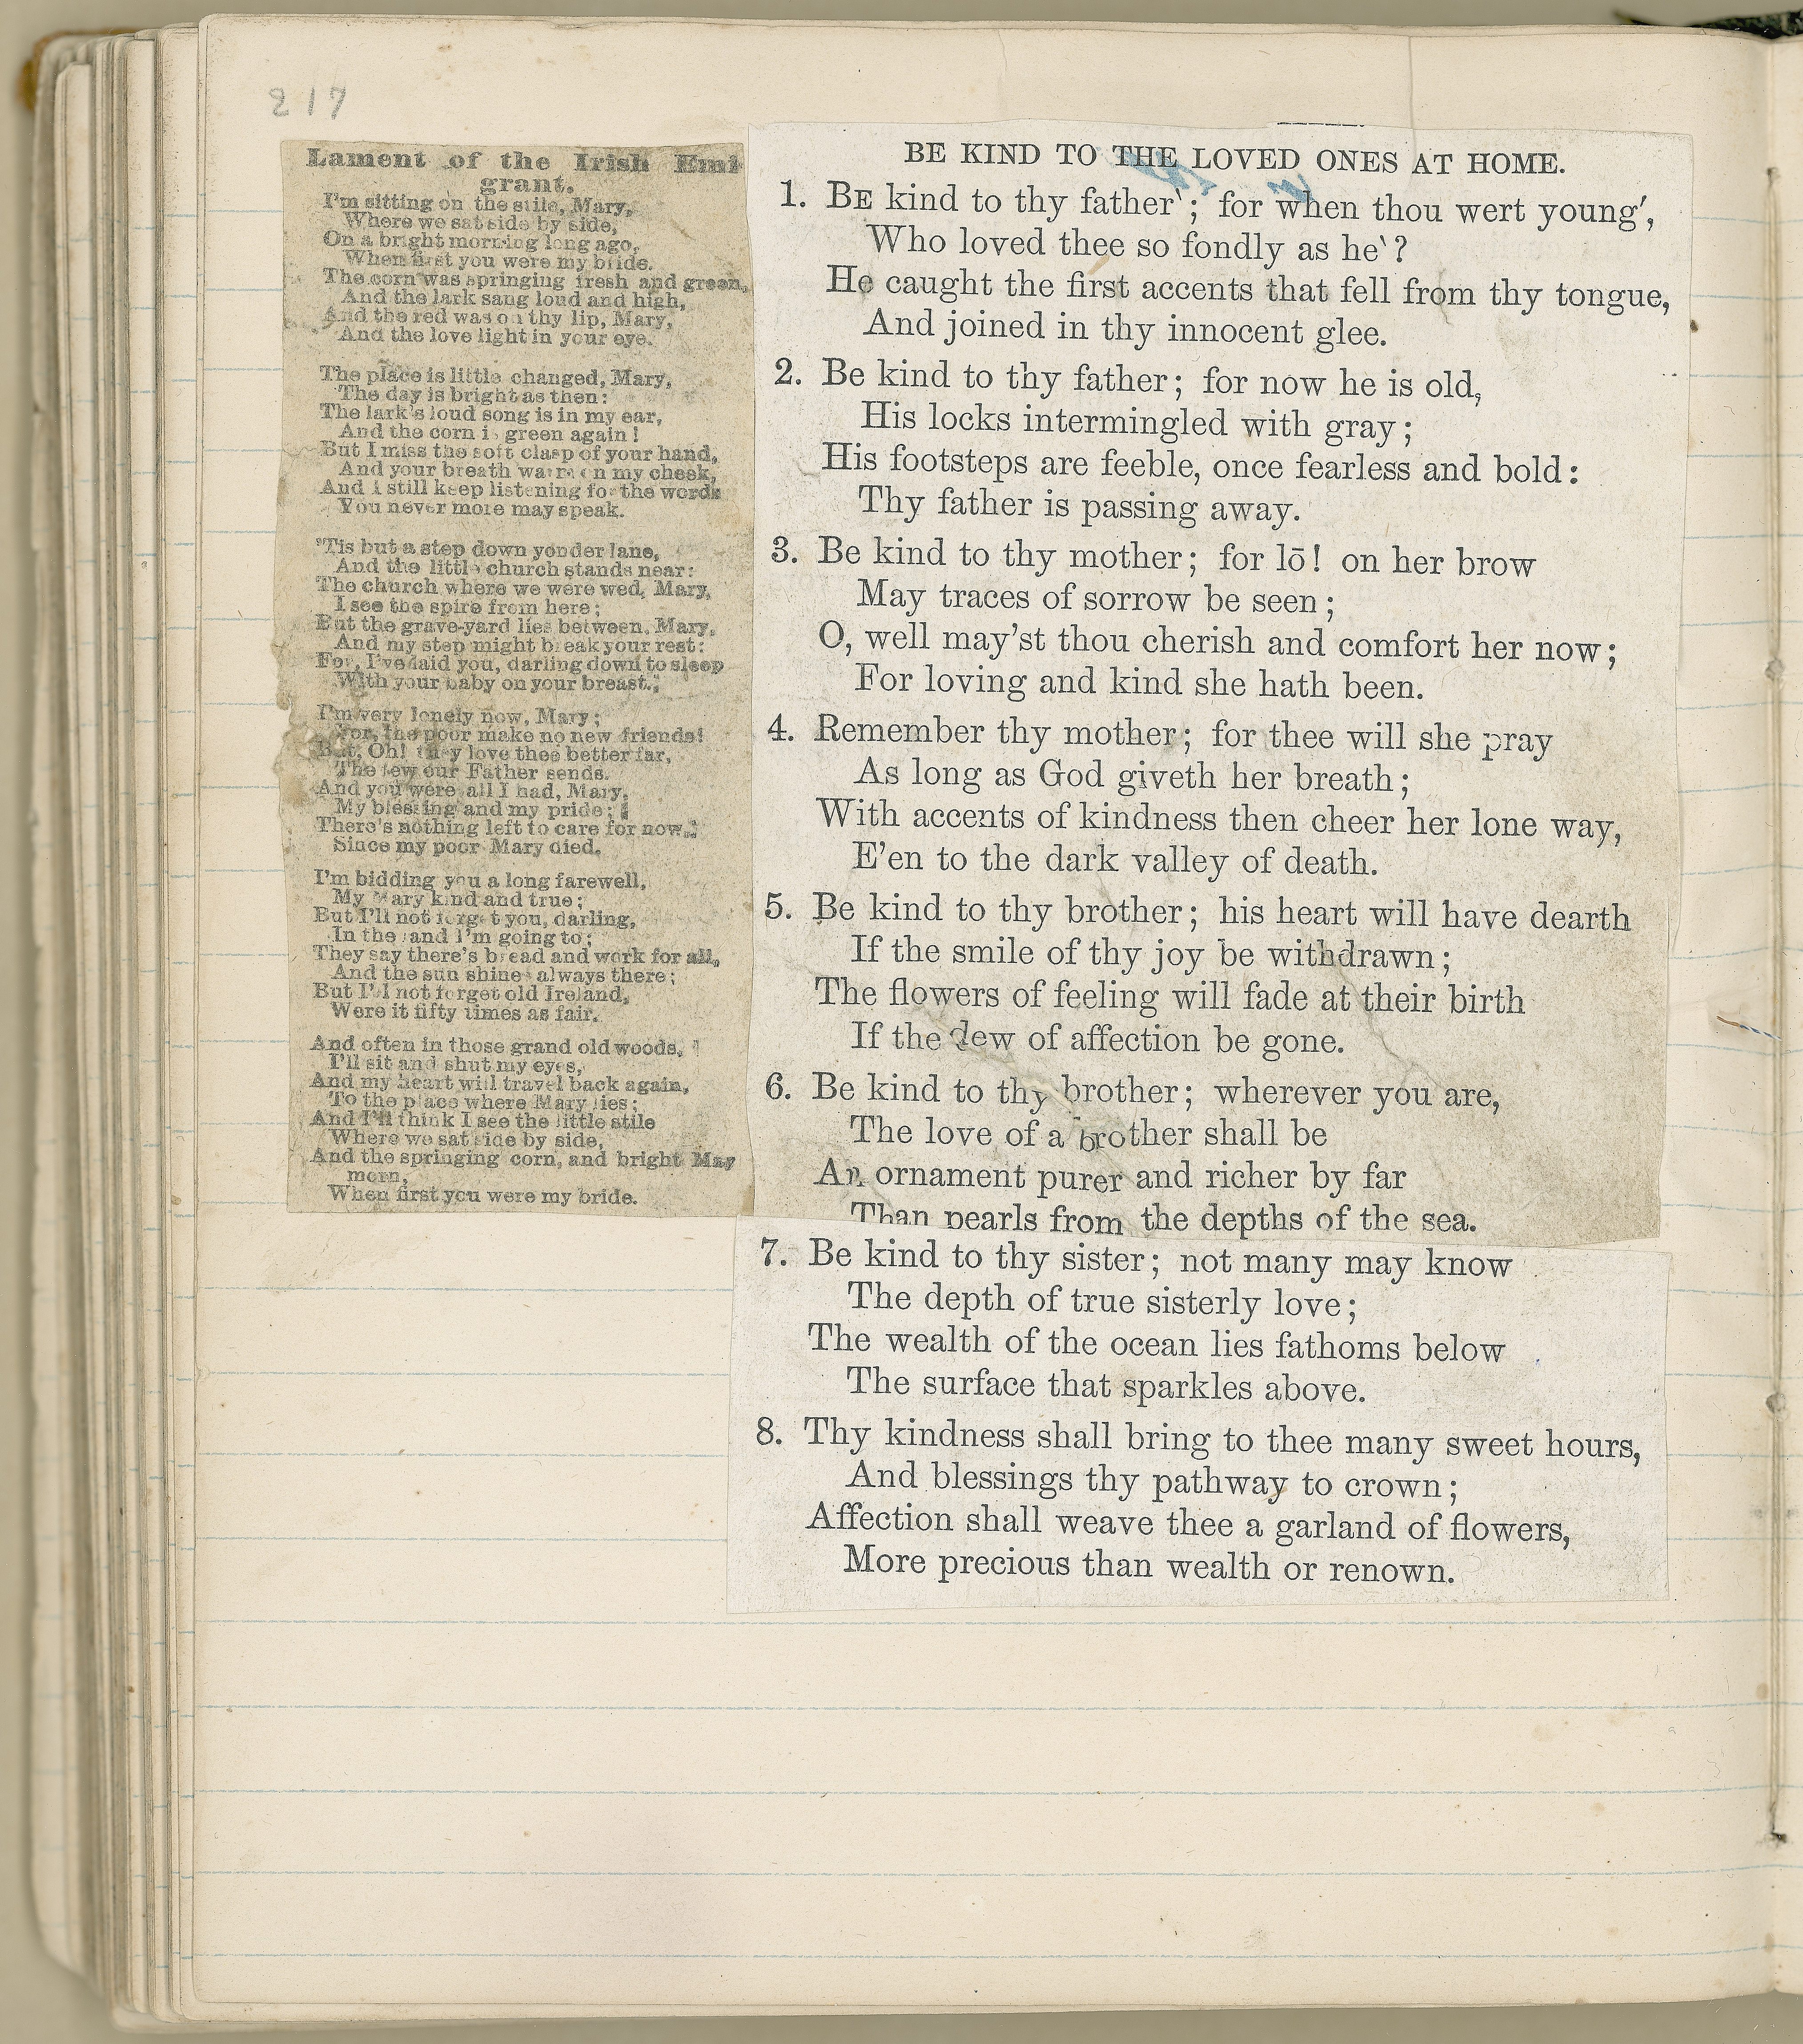 217
Lament of the Irish Emi-
grant.
I'm sitting on the stile, Mary,
Where we sat side by side,
On a bright morning long ago,
When first you were my bride.
The corn was springing fresh and green,
And the lark sang loud and high,
And the red was on thy lip, Mary,
And the love light in your eye.
The place is little changed, Mary,
The day is bright as then:
The lark's loud song is in my ear,
And the corn is green again!
But I miss the soft clasp of your hand,
And your breath warm on my cheek,
And I still keep listening for the words
You never more may speak.
'Tis but a step down yonder lane,
And the little church stands near:
The church where we were wed, Mary,
I see the spire from here;
But the grave-yard lies between, Mary,
And my step might break your rest:
For, I've laid you, darling down to sleep
With your baby on your breast.
I'm very lonely now, Mary;
For, the poor make no new friends!
But, Oh! they love thee better far,
The few our Father sends.
And you were all I had, Mary,
My blessing and my pride;
There's nothing left to care for now,
Since my poor Mary died.
I'm bidding you a long farewell,
My Mary kind and true;
But I'll not forget you, darling,
In the land I'm going to;
They say there's bread and work for all,
And the sun shines always there;
But I'll not forget old Ireland,
Were it fifty times as fair.
And often in those grand old woods,
I'll sit and shut my eyes,
And my heart will travel back again,
To the place where Mary lies;
And I'll think I see the little stile
Where we sat side by side,
And the springing corn, and bright May
morn,
When first you were my bride.
BE KIND TO THE LOVED ONES AT HOME.
1. BE kind to thy father`; for when thou wert young′,
Who loved thee so fondly as he`?
He caught the first accents that fell from thy tongue,
And joined in thy innocent glee.
2. Be kind to thy father; for now he is old,
His locks intermingled with gray;
His footsteps are feeble, once fearless and bold:
Thy father is passing away.
3. Be kind to thy mother; for lō! on her brow
May traces of sorrow be seen;
O, well may'st thou cherish and comfort her now;
For loving and kind she hath been.
4. Remember thy mother; for thee will she pray
As long as God giveth her breath;
With accents of kindness then cheer her lone way,
E'en to the dark valley of death.
5. Be kind to thy brother; his heart will have dearth
If the smile of thy joy be withdrawn;
The flowers of feeling will fade at their birth
If the dew of affection be gone.
6. Be kind to thy brother; wherever you are,
The love of a brother shall be
An ornament purer and richer by far
Than pearls from the depths of the sea.
7. Be kind to thy sister; not many may know
The depth of true sisterly love;
The wealth of the ocean lies fathoms below
The surface that sparkles above.
8. Thy kindness shall bring to thee many sweet hours,
And blessings thy pathway to crown;
Affection shall weave thee a garland of flowers,
More precious than wealth or renown.